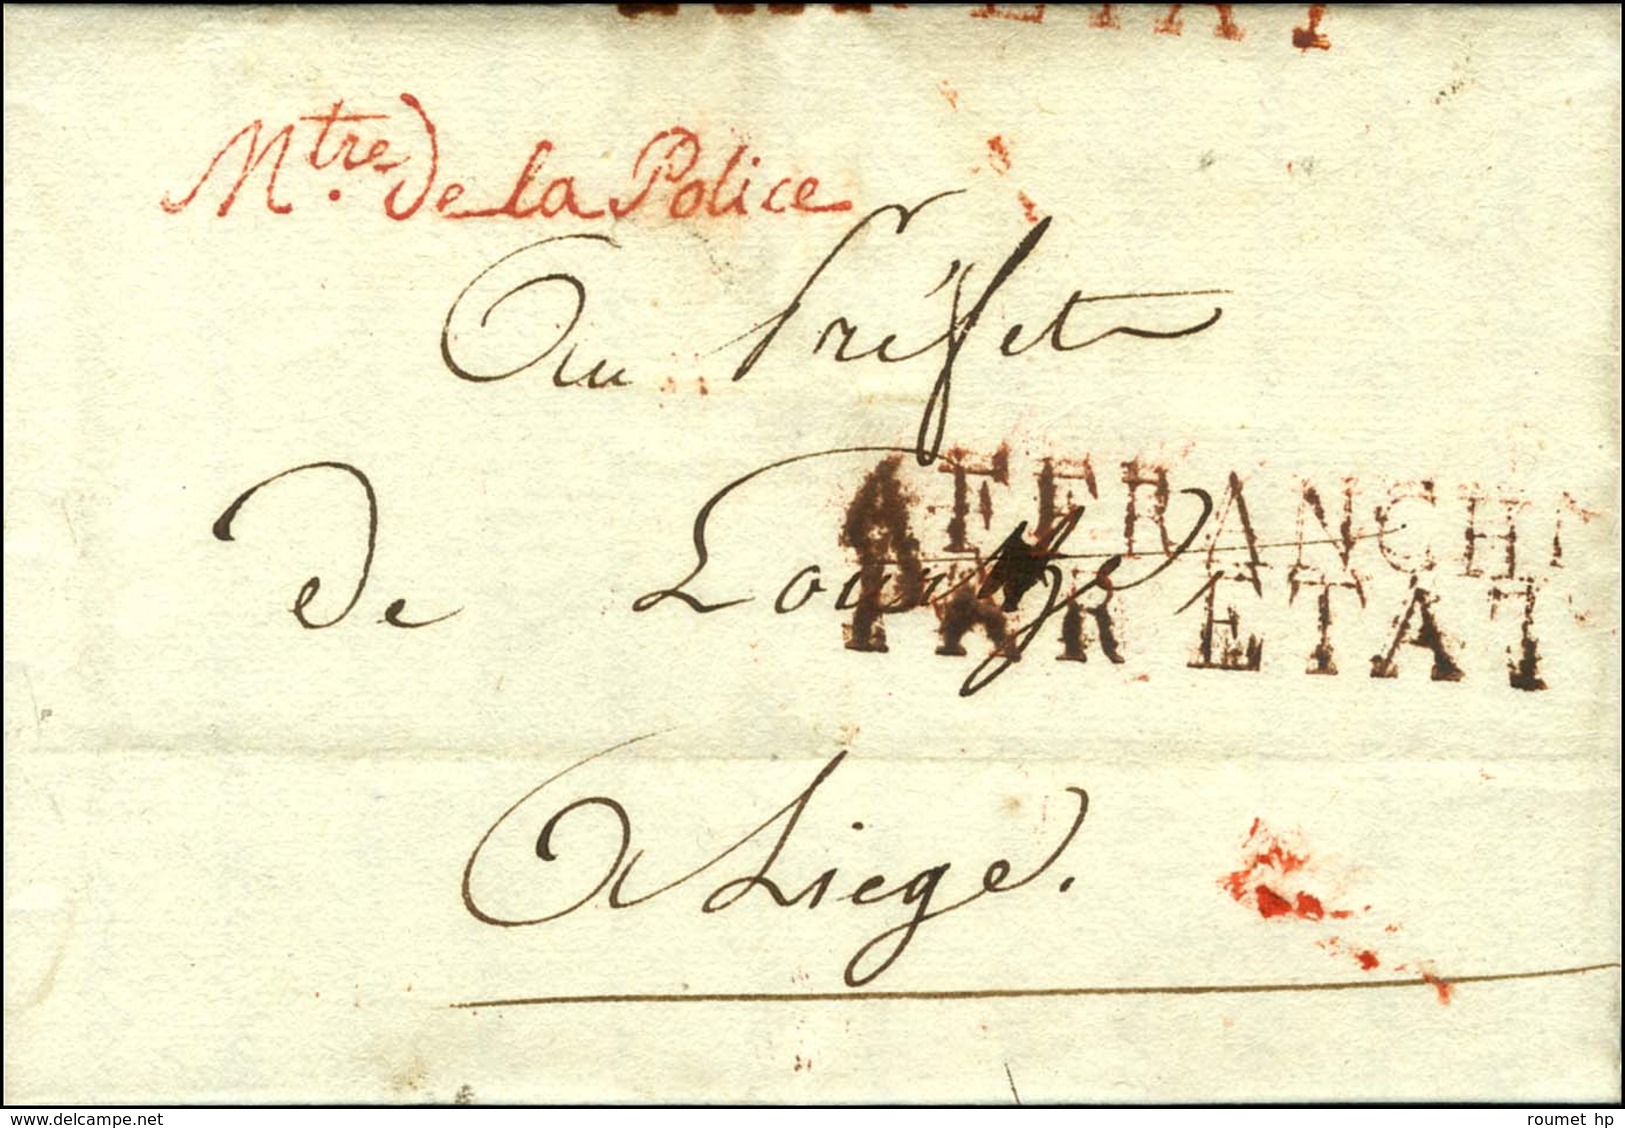 ETAT
Mtre. de la Police
Au Préfet
AFFRANCHI
de Lourthe,
PAR ETAT
A Liege.
delcampe.net
roumet hp